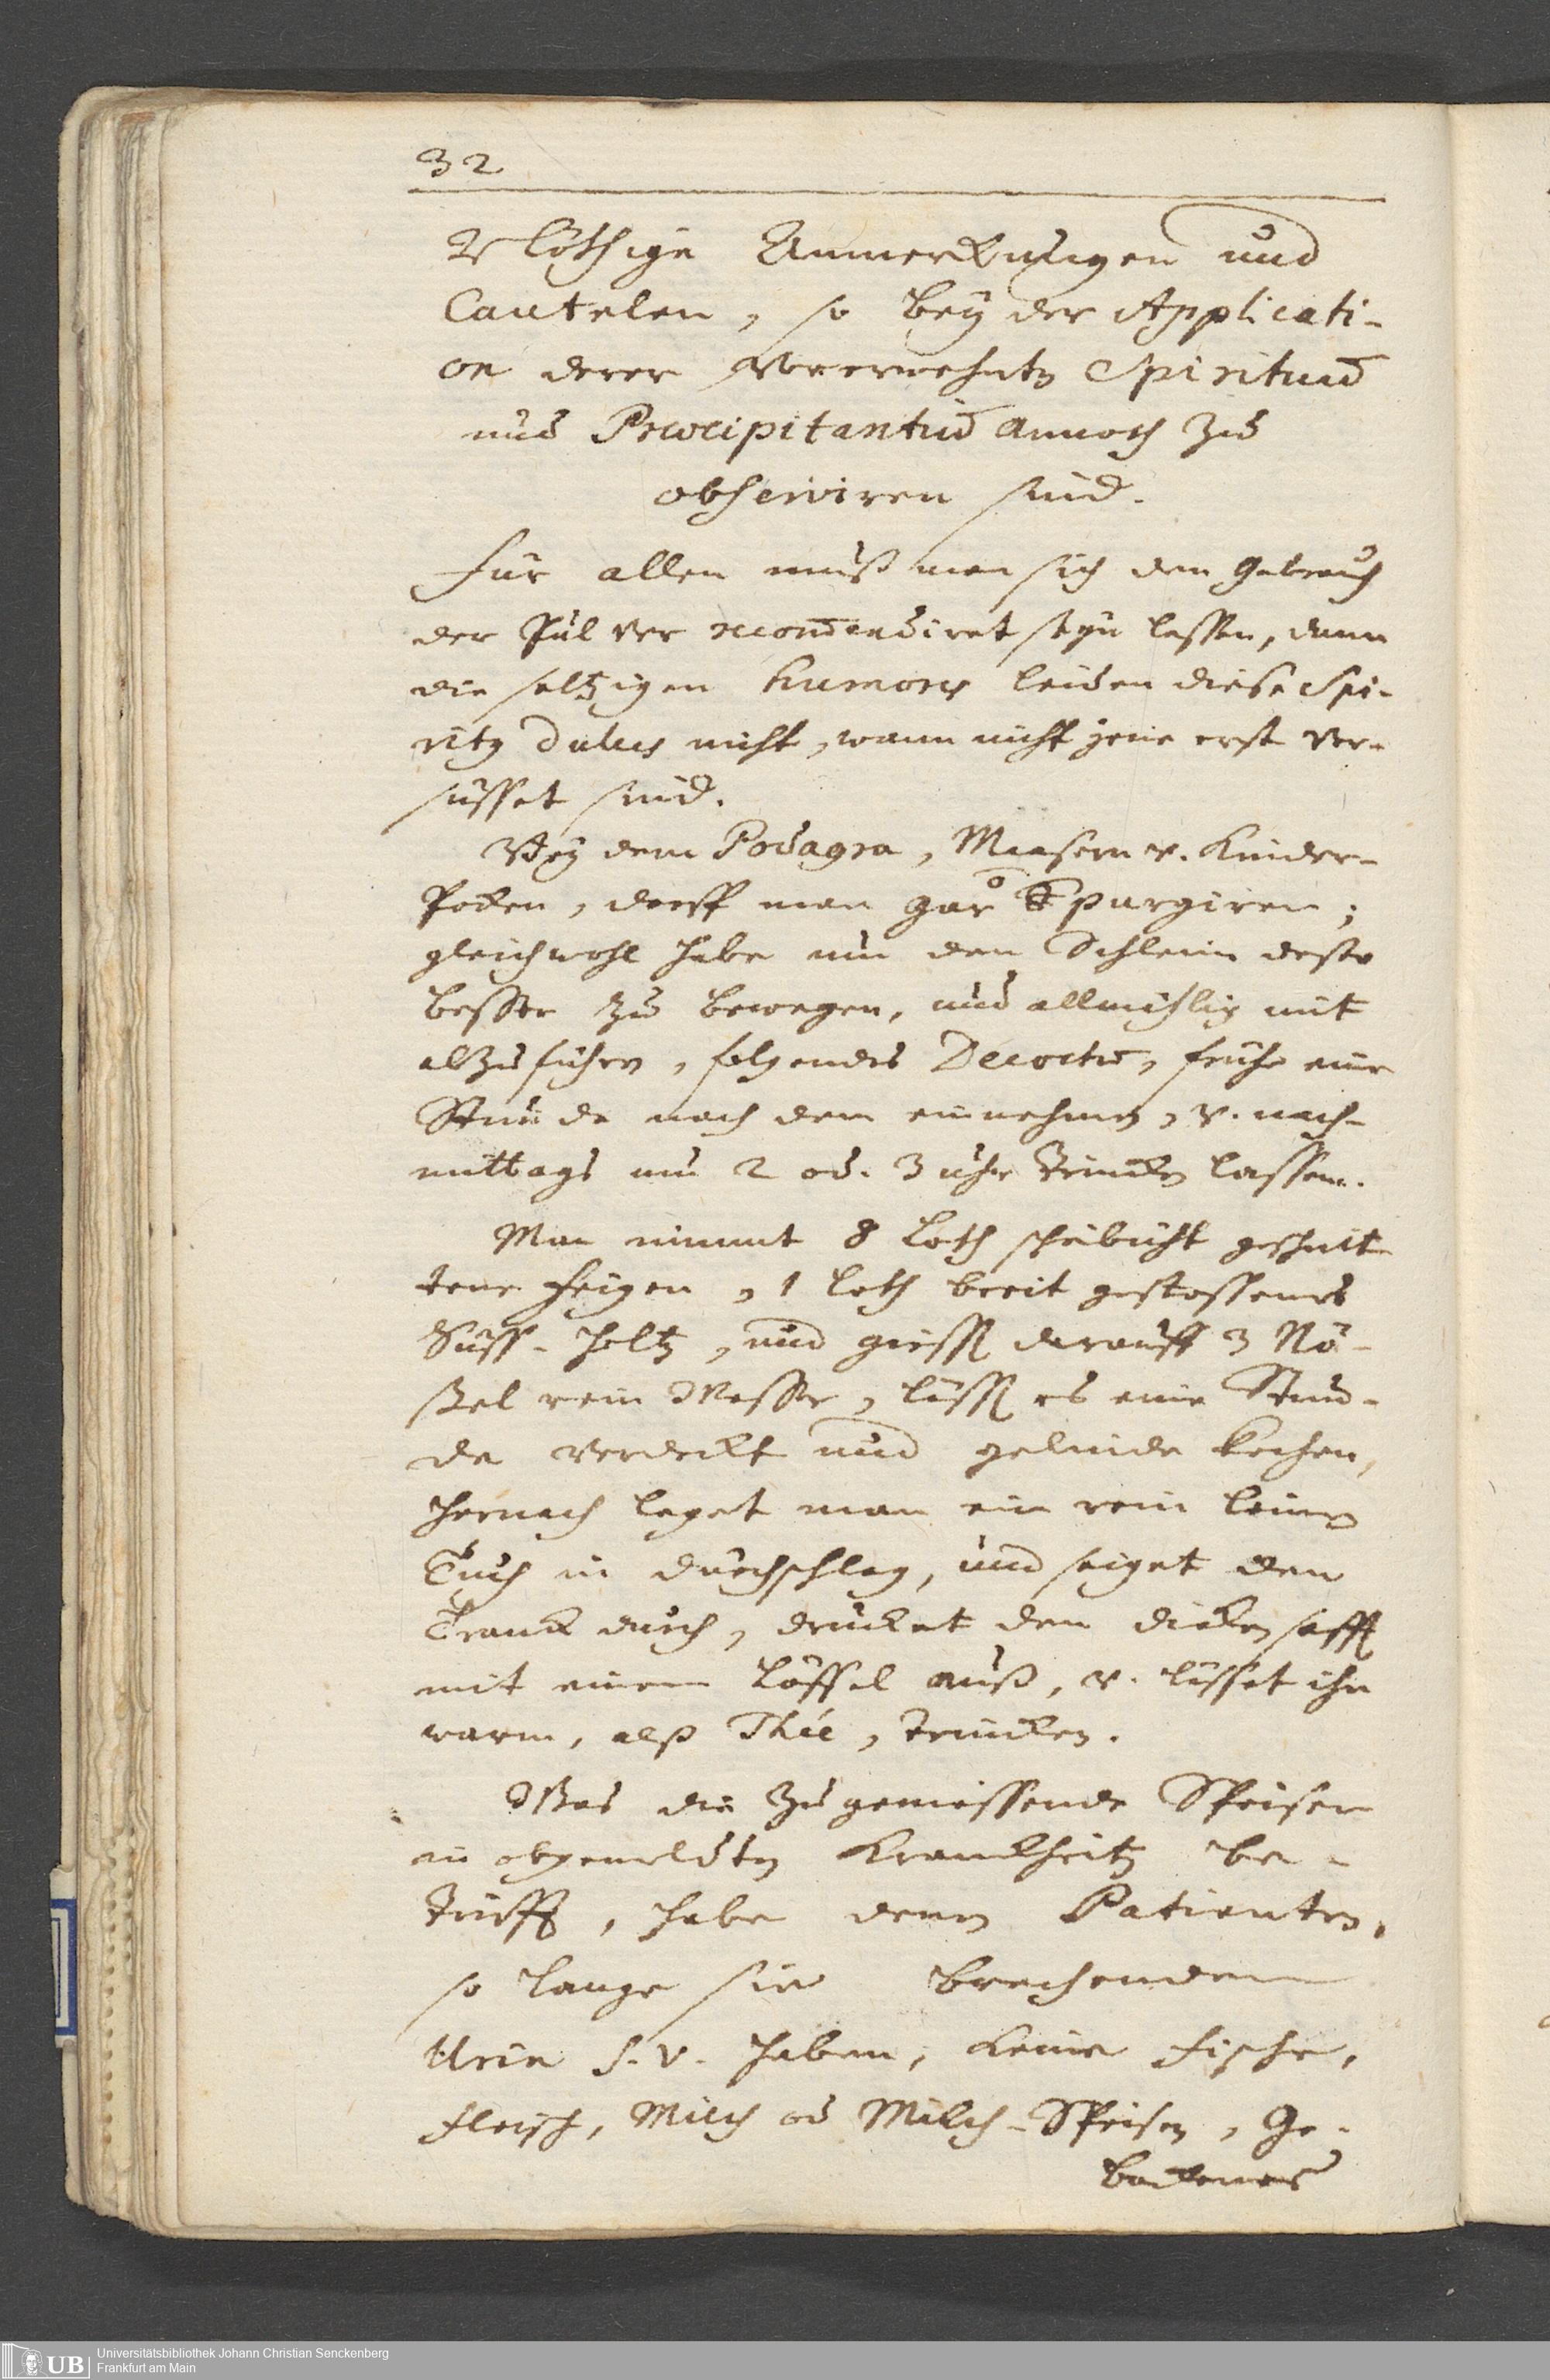 32
Nöthige Anmerkungen und
Cautelen, so bey der Applicati-
on derer vorerwehntn Spirituū
und Præcipitantiū annoch zu
observiren sind.
Für allen muß man sich den Gebrauch
der Pulver recom̄endiret seyn lassen, dann
die saltzigen humores leiden diese Spi-
rity dulces nicht, wann nicht jene erst ver-
süsset sind.
Bey dem Podagra, Masern v. Kinder-
Pocken, darff man gar purgiren;
gleichwohl habe um den Schleim desto
besser zu bewegen, und allmählig mit
abzuführn, folgendes Decoctū, frühe eine
Stunde nach dem einnehmen, v. nach-
mittags um 2 od. 3 uhr trincken lassen.
Man nimmt 8 Loth scheibicht geschnit-
tene Feigen, 1 loth breit gestossenes
Süss-holtz, und giesst darauff 3 Nö-
ßel rein Wasser, lässt es eine Stun-
de verdeckt und gelinde kochen,
hernach leget man ein rein leinen
Tuch in durchschlag, und seiget den
Tranck durch, drucket den dicken safft
mit einem Löffel auß, v. lässet ihn
warm, alß Thée, trincken.
Was die zu geniessende Speisen
in obgemeldten Kranckheiten be-
trifft, habe denen Patienten,
so lange sie brechenden
Urin s. v. haben, keine Fische,
Fleisch, Milch od Milch-Speisen, Ge-
backenes
Universitätsbibliothek Johann Christian Senckenberg
Frankfurt am Main
UB